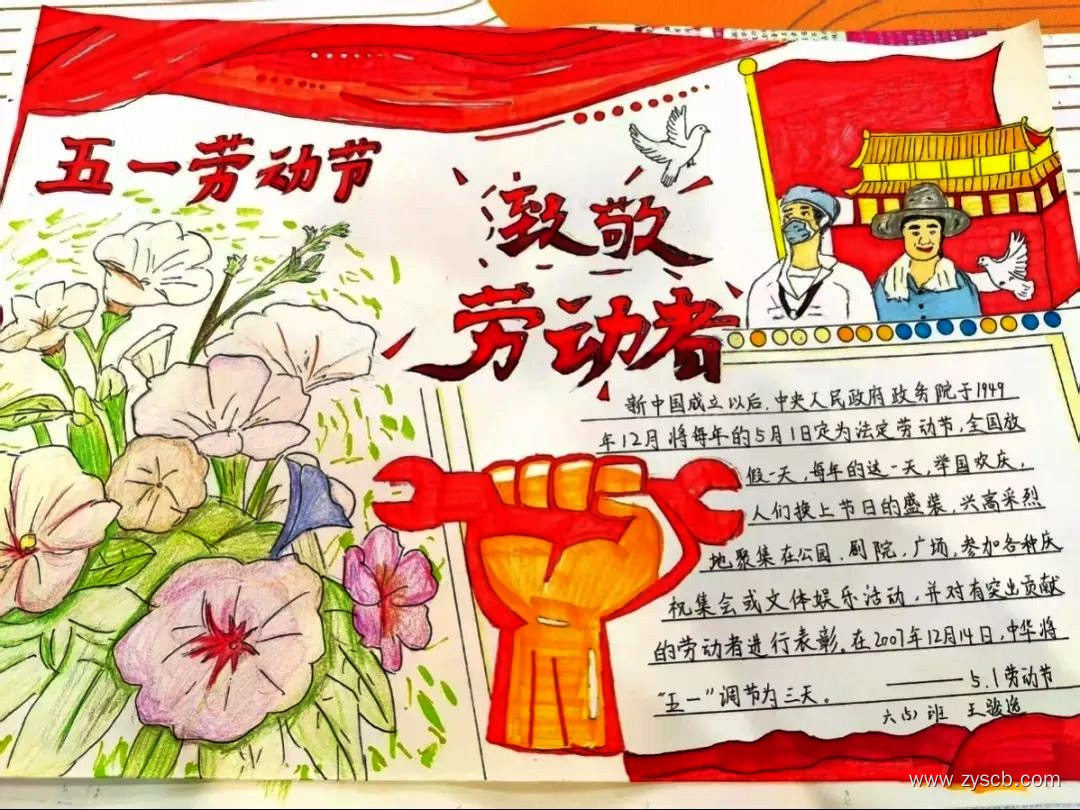 五一劳动节
致敬
劳动者
新中国成立以后，中央人民政府政务院于1949
年12月将每年的5月1日定为法定劳动节，全国放
假一天，每年的这一天，举国欢庆，
人们换上节日的盛装，兴高采烈
地聚集在公园、剧院，广场，参加各种庆
祝集会或文体娱乐活动，并对有突出贡献
的劳动者进行表彰。在2007年12月14日，中华将
“五一”调节为三天。
——5.1劳动节
班 王骏逸
www.zyscb.com